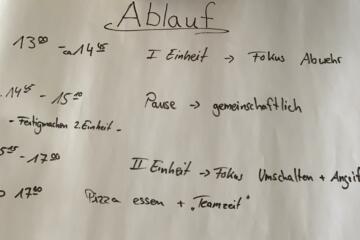 Ablauf
13⁰⁰ - ca 14⁴⁵ I Einheit → Fokus Abwehr
14⁴⁵ - 15¹⁰ Pause → gemeinschaftlich
- Fertigmachen 2. Einheit -
- 17⁰⁰ II Einheit → Fokus Umschalten + Angriff
Pizza essen + "Teamzeit"